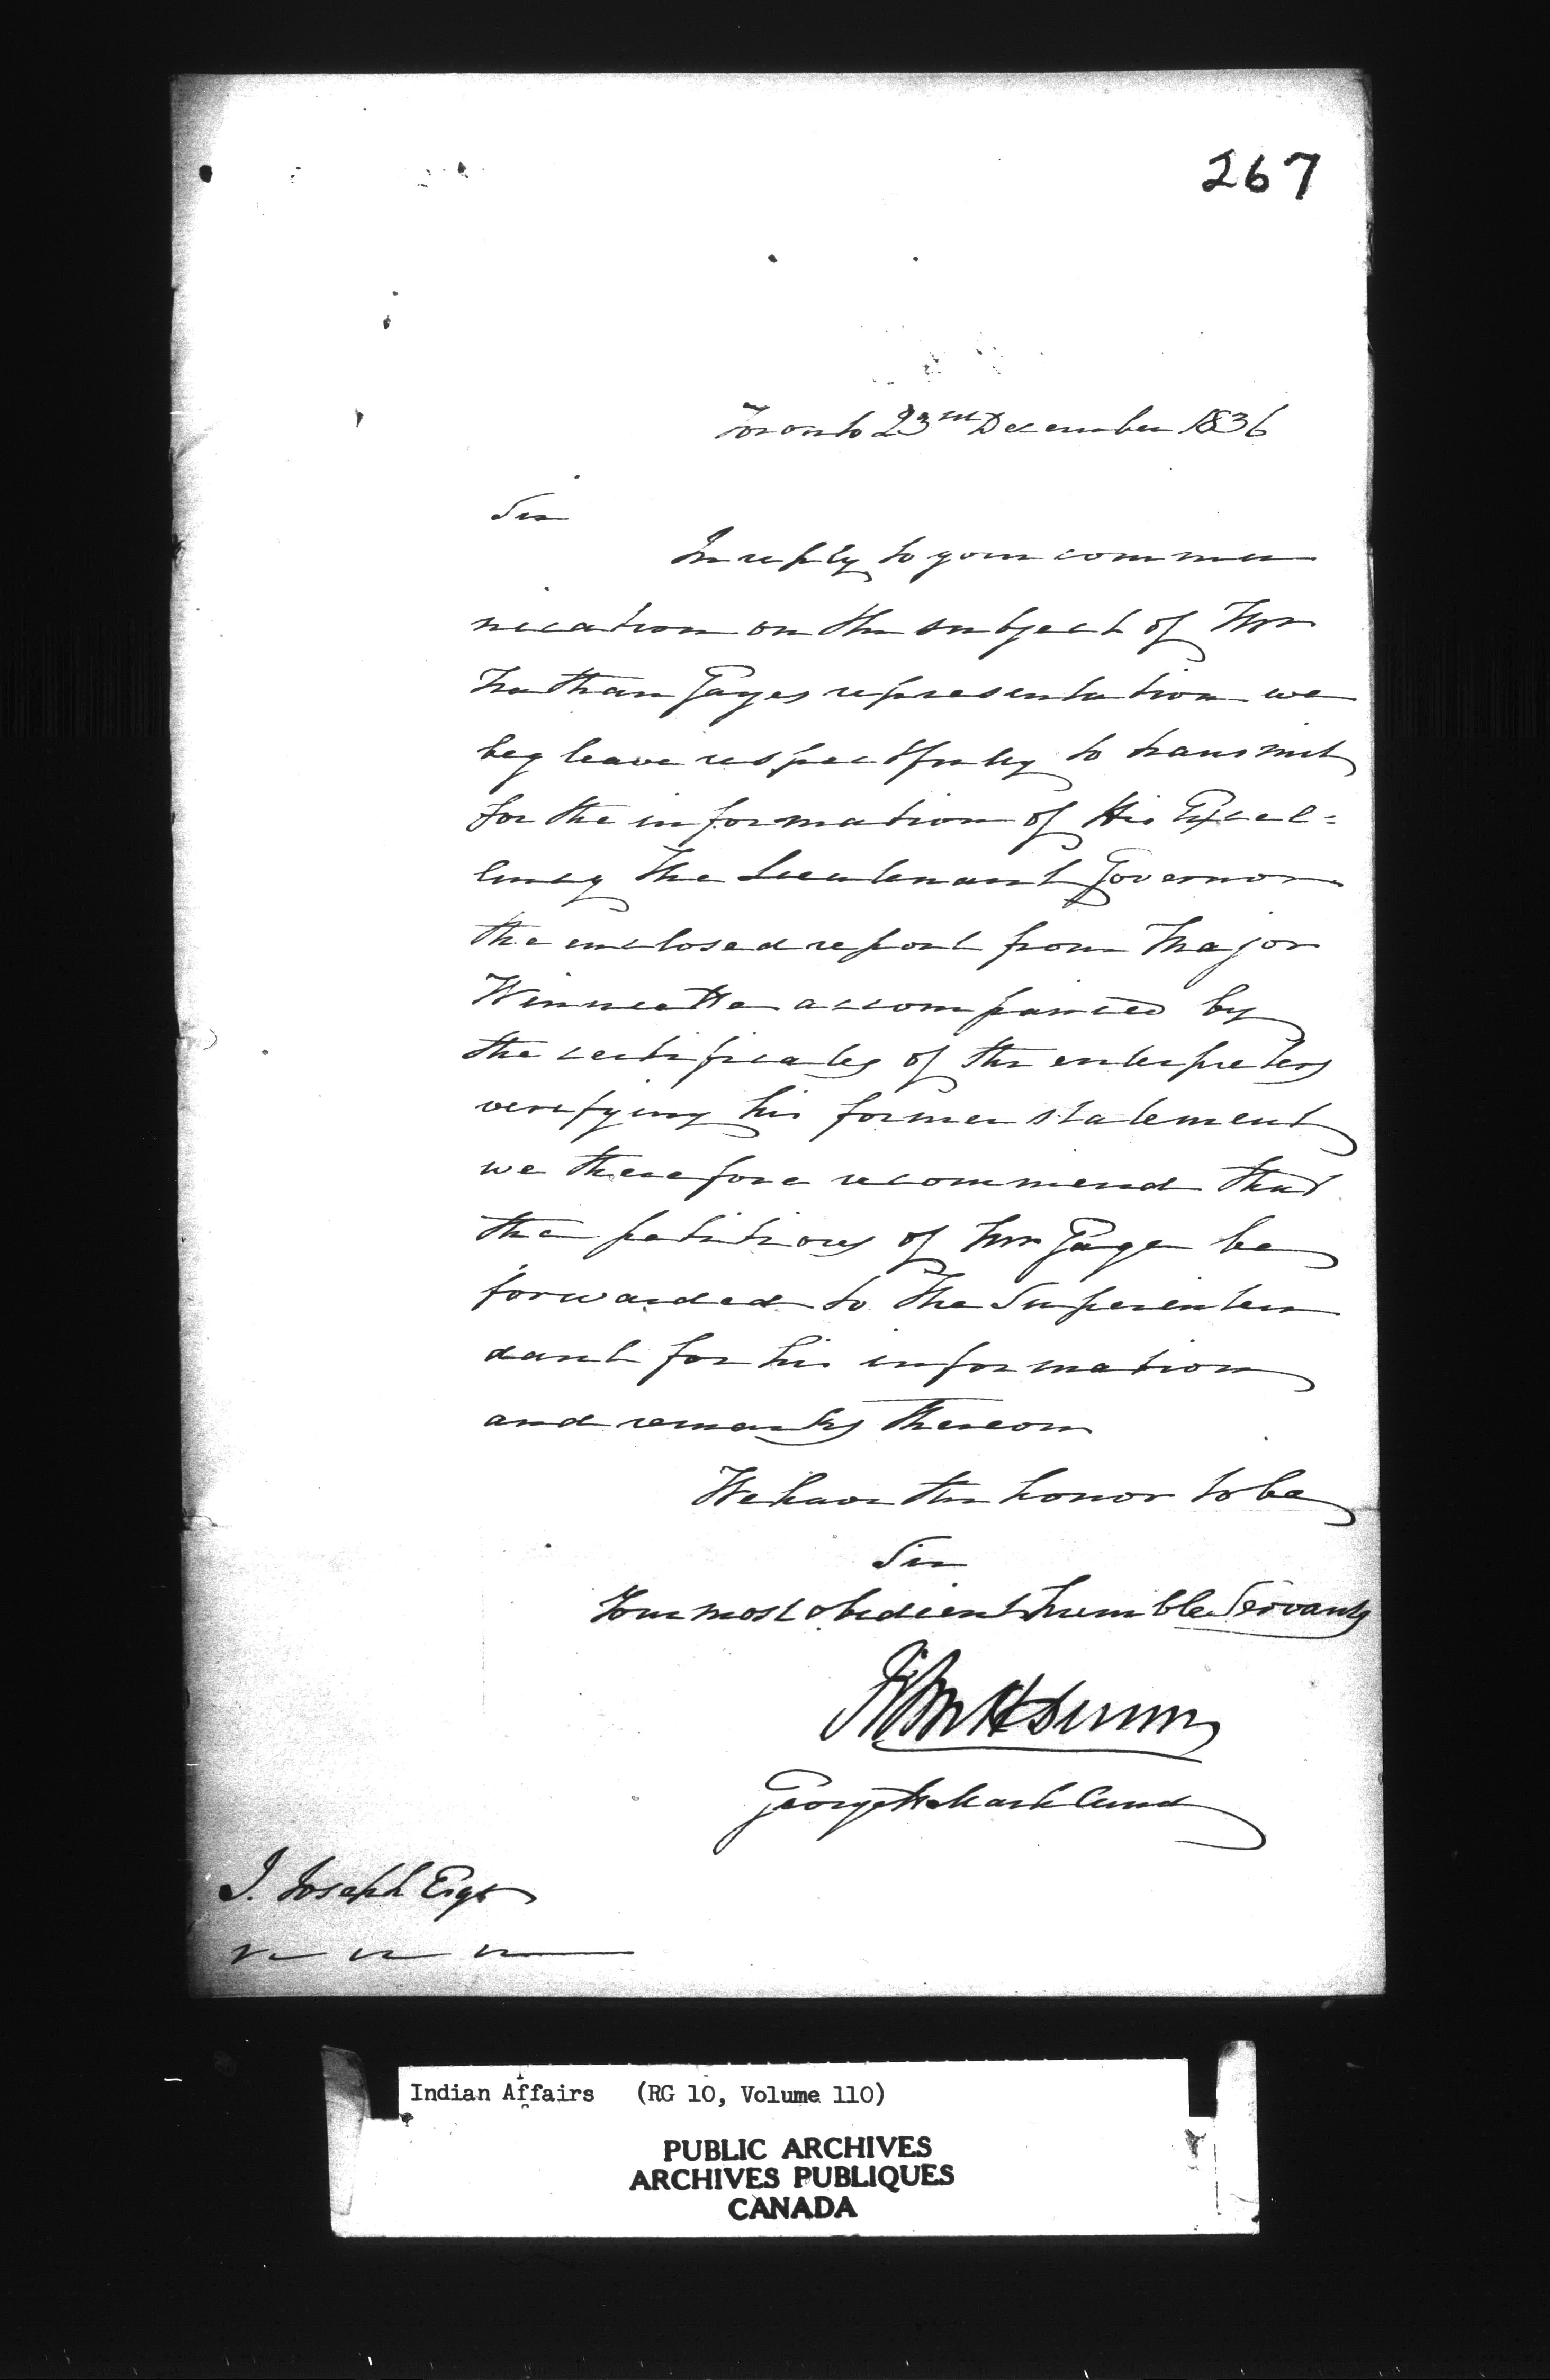 267
Toronto 23rd December 1836
Sir
In reply to your commu
nication on the subject of Mr
Nathan Gages representation we
beg leave respectfully to transmit
for the information of His Excel=
lency The Lieutenant Governor
the enclosed report from Major
Winniette accompanied by
the certificates of the enterpreters
verifying his former statement
we therefore recommend that
the petitions of Mr Gage be
forwarded to The Superinten
dant for his information
and remarks thereon
We have the honor to be
Sir
Your most obedient humble Servants
John H Dunn
George H Markland
J. Joseph Esqr
Indian Affairs (RG 10, Volume 110)
PUBLIC ARCHIVES
ARCHIVES PUBLIQUES
CANADA